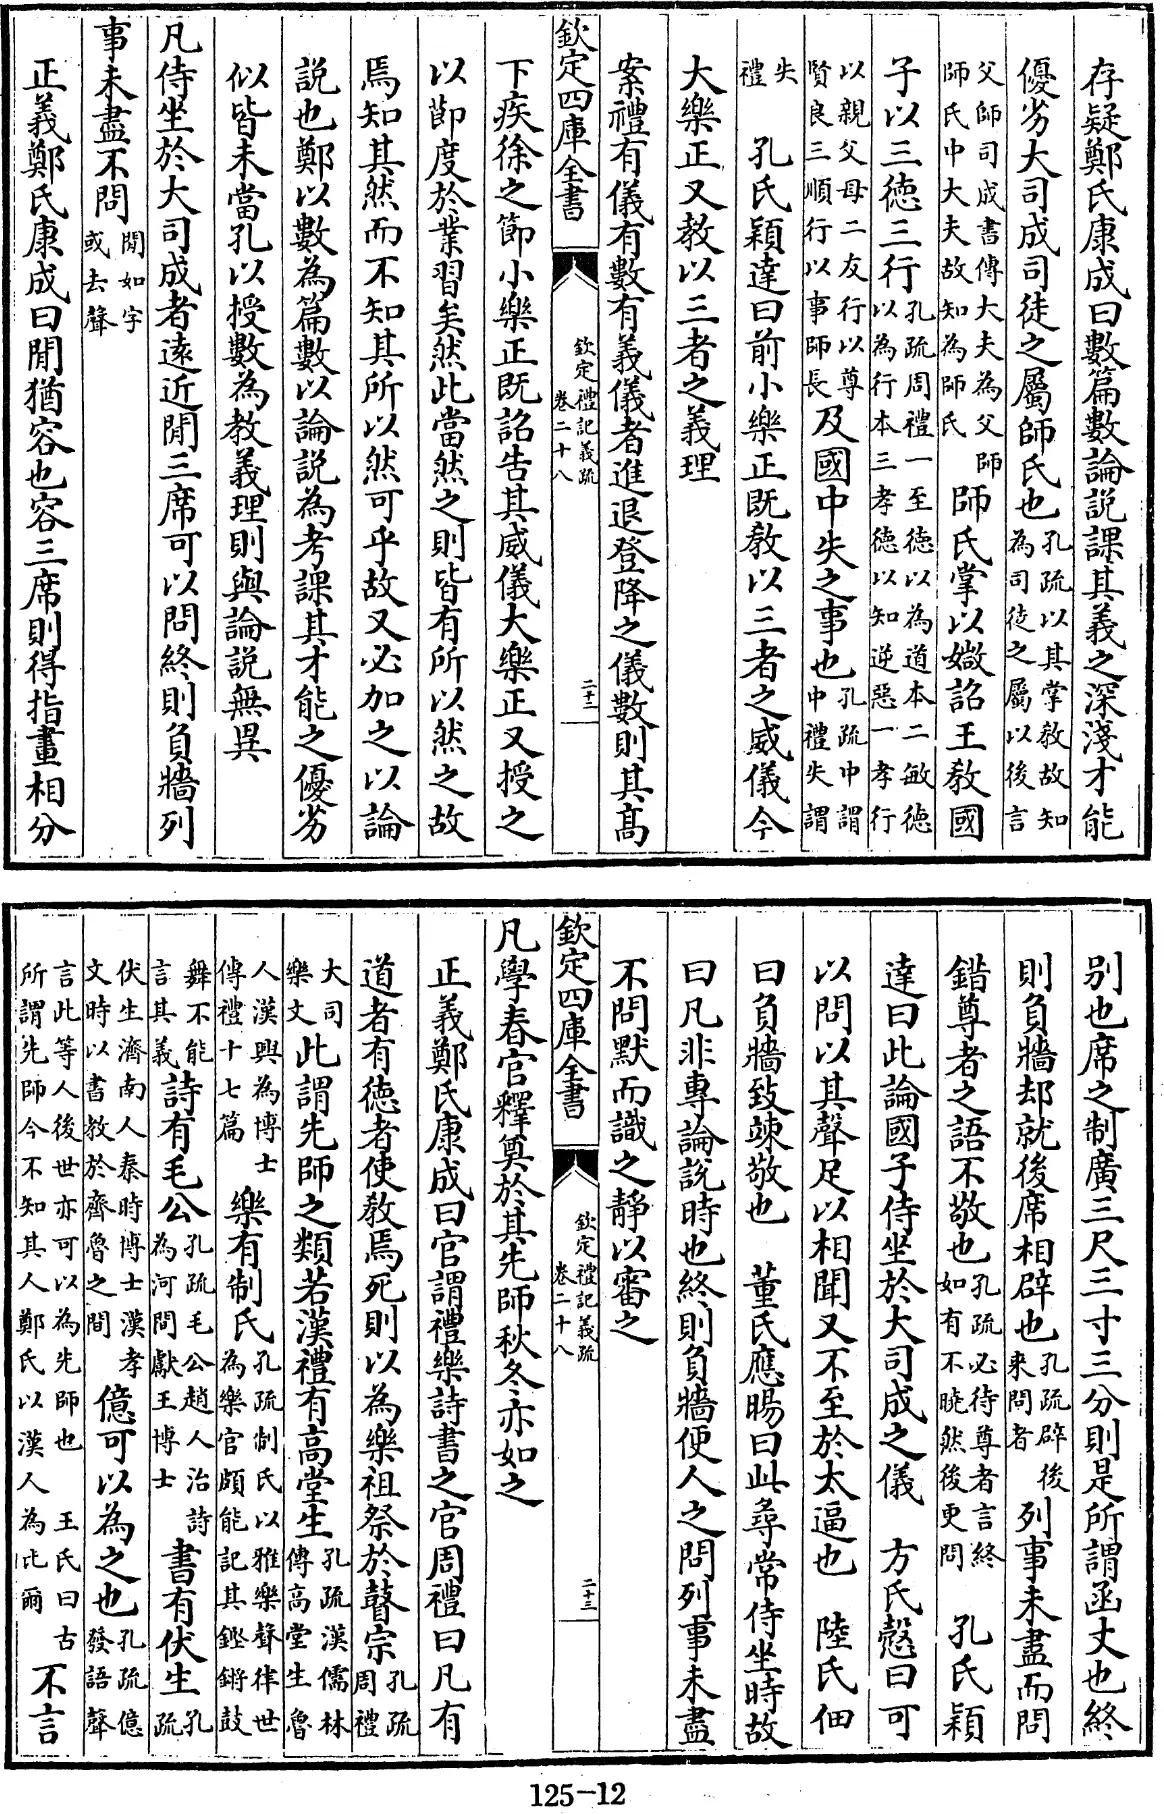 存疑鄭氏康成曰數篇數論説課其義之深淺才能
優劣大司成司徒之屬師氏也孔疏以其掌教故知為司徒之屬以後言
父師司成書傳大夫為父師師氏中大夫故知為師氏師氏掌以媺詔王教國
子以三徳三行孔疏周禮一至徳以為道本二敏徳以為行本三孝徳以知逆惡一孝行
以親父母二友行以尊賢良三順行以事師長及國中失之事也孔疏中謂中禮失謂
失禮 孔氏穎達曰前小樂正既教以三者之威儀今
大樂正又教以三者之義理
案禮有儀有數有義儀者進退登降之儀數則其髙
欽定四庫全書 欽定禮記義疏 卷二十八 二十二
下疾徐之節小樂正既詔告其威儀大樂正又授之
以節度於業習矣然此當然之則皆有所以然之故
焉知其然而不知其所以然可乎故又必加之以論
説也鄭以數為篇數以論説為考課其才能之優劣
似皆未當孔以授數為教義理則與論説無異
凡侍坐於大司成者逺近閒三席可以問終則負牆列
事未盡不問閒如字或去聲
正義鄭氏康成曰閒猶容也容三席則得指畫相分
别也席之制廣三尺三寸三分則是所謂函丈也終
則負牆却就後席相辟也孔疏辟後來問者 列事未盡而問
錯尊者之語不敬也孔疏必待尊者言終如有不曉然後更問 孔氏穎
達曰此論國子侍坐於大司成之儀 方氏慤曰可
以問以其聲足以相聞又不至於太逼也 陸氏佃
曰負牆致竦敬也 董氏應暘曰此尋常侍坐時故
曰凡非專論説時也終則負牆便人之問列事未盡
不問默而識之靜以審之
欽定四庫全書 欽定禮記義疏 卷二十八 二十三
凡學春官釋奠於其先師秋冬亦如之
正義鄭氏康成曰官謂禮樂詩書之官周禮曰凡有
道者有徳者使教焉死則以為樂祖祭於瞽宗孔疏周禮
大司樂文此謂先師之類若漢禮有高堂生孔疏漢儒林傳高堂生魯
人漢興為博士傳禮十七篇 樂有制氏孔疏制氏以雅樂聲律世為樂官頗能記其鏗鏘鼓
舞不能言其義詩有毛公孔疏毛公趙人治詩為河間獻王博士 書有伏生孔疏
伏生濟南人秦時博士漢孝文時以書教於齊魯之間 億可以為之也孔疏億發語聲
言此等人後世亦可以為先師也 王氏曰古所謂先師今不知其人鄭氏以漢人為比爾 不言
125-12